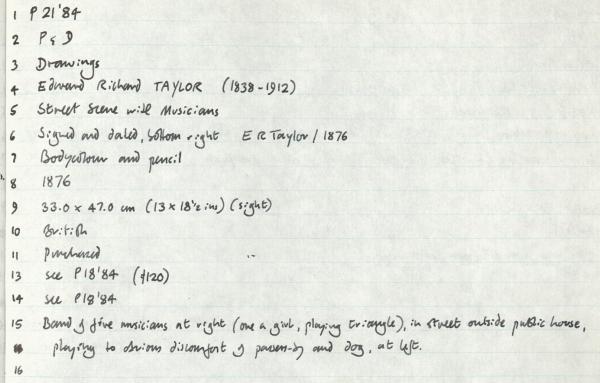 1 P 21'84
2 P & D
3 Drawings
4 Edward Richard TAYLOR (1838-1912)
5 Street Scene with Musicians
6 Signed and dated, bottom right E R Taylor / 1876
7 Bodycolour and pencil
8 1876
9 33.0 x 47.0 cm (13 x 18½ ins) (sight)
10 British
11 Purchased
13 see P18'84 (£120)
14 see P18'84
15 Band of five musicians at right (one a girl, playing triangle), in street outside public house,
playing to obvious discomfort of passers-by and dog, at left.
16